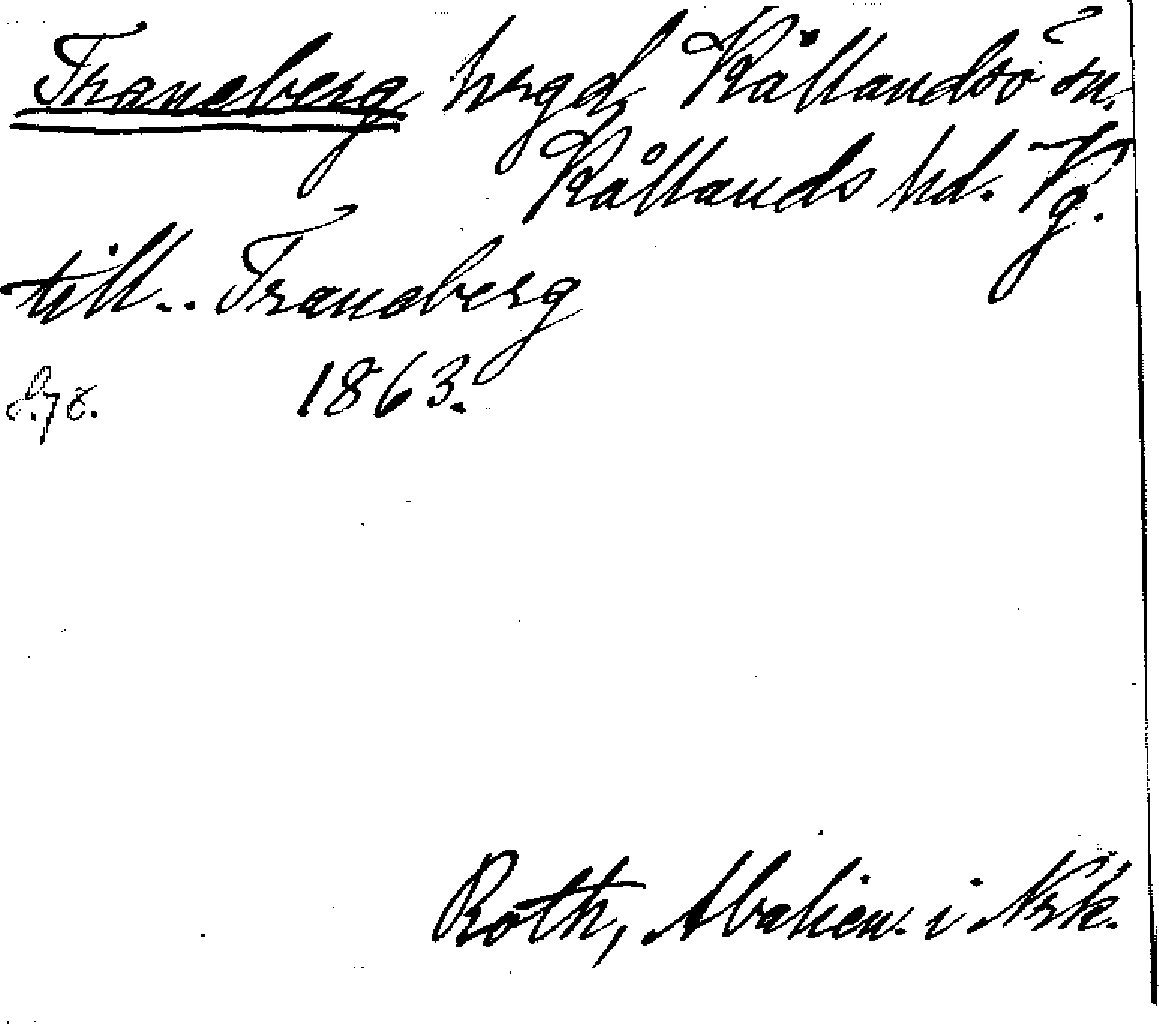 Traneberg hrgd, Kållandsö sn.
Kållands hd. Vg.
till.. Traneberg
1863.
Roth, Abalien. i Nrk.